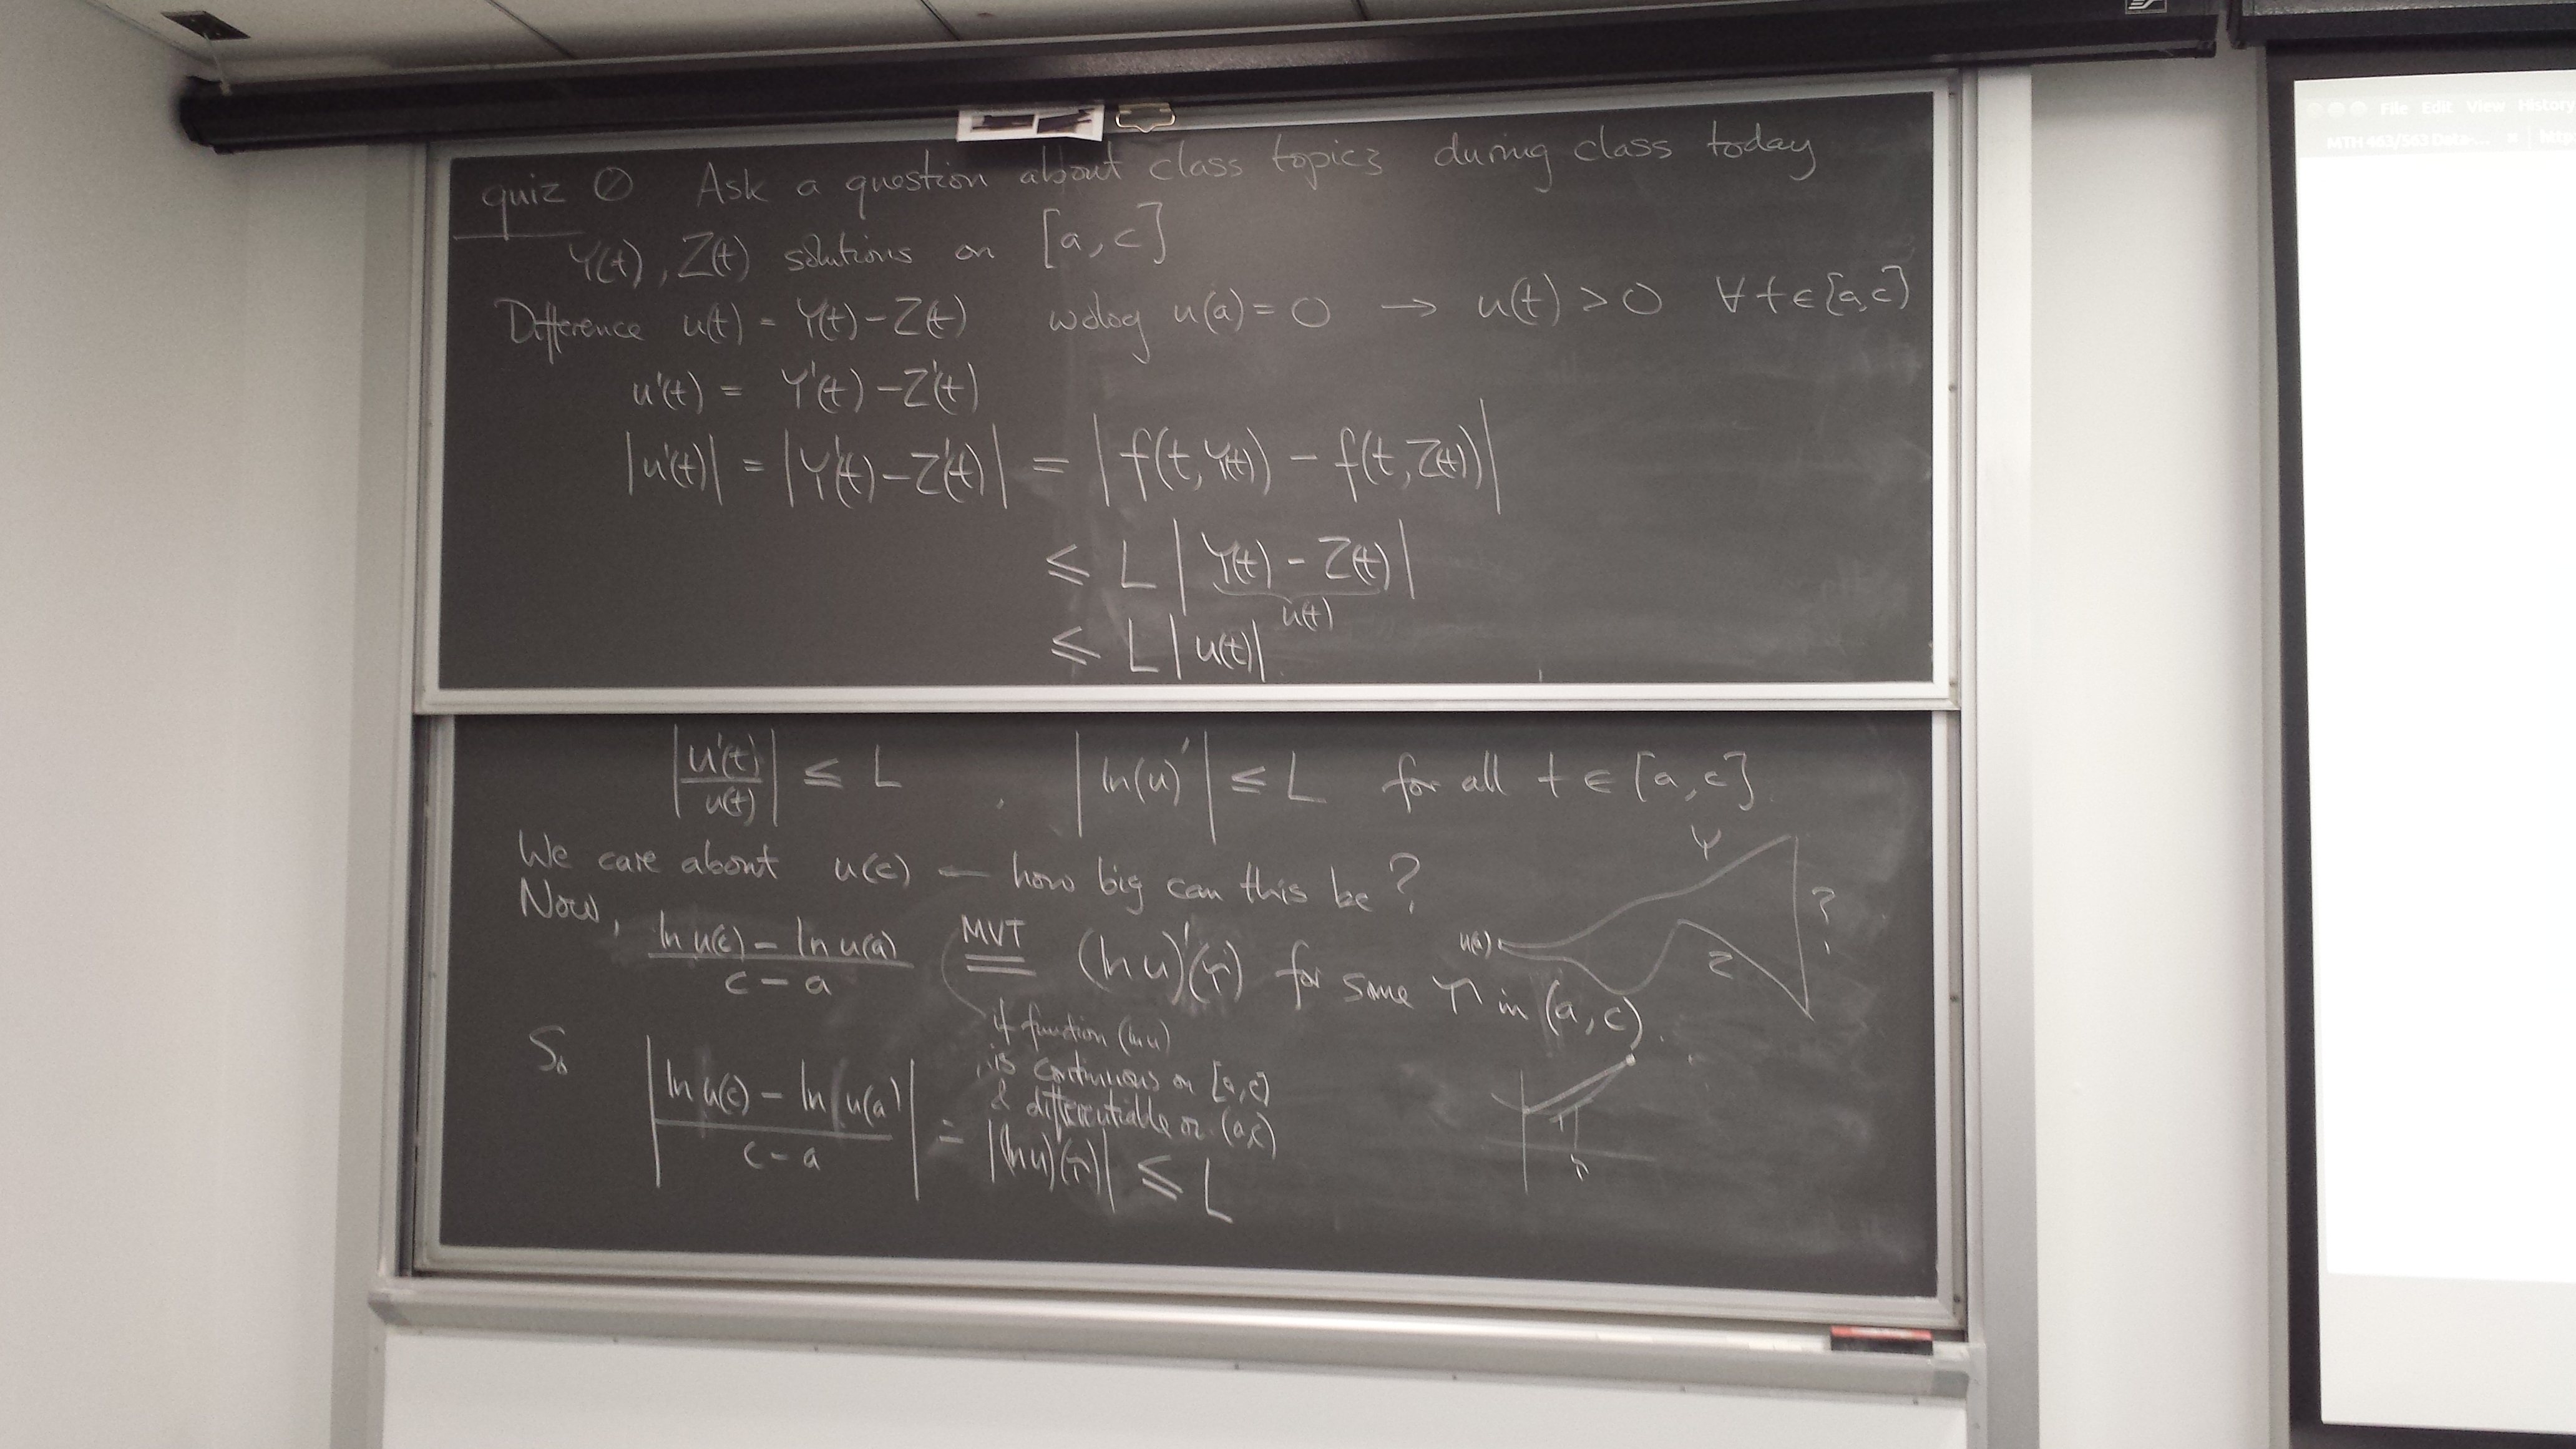 quiz 0 Ask a question about class topics during class today
Y(t), Z(t) solutions on [a,c]
Difference u(t) = Y(t) - Z(t) wolog u(a) = 0 → u(t) > 0 ∀ t ∈ [a,c]
u'(t) = Y'(t) - Z'(t)
|u'(t)| = |Y'(t) - Z'(t)| = |f(t,Y(t)) - f(t,Z(t))|
≤ L |Y(t) - Z(t)|
u(t)
≤ L |u(t)|
|u'(t)/u(t)| ≤ L , |ln(u)'| ≤ L for all t ∈ [a,c].
We care about u(c) — how big can this be?
Now, (ln u(c) - ln u(a))/(c - a) MVT = (ln u)'(τ) for some τ in (a,c).
if function (ln u)
is continuous on [a,c]
& differentiable on (a,c)
So |(ln u(c) - ln u(a))/(c - a)| = |(ln u)'(τ)| ≤ L
Y
u(a)
?
Z
τ
File Edit View History
MTH 463/563 Data-... × http